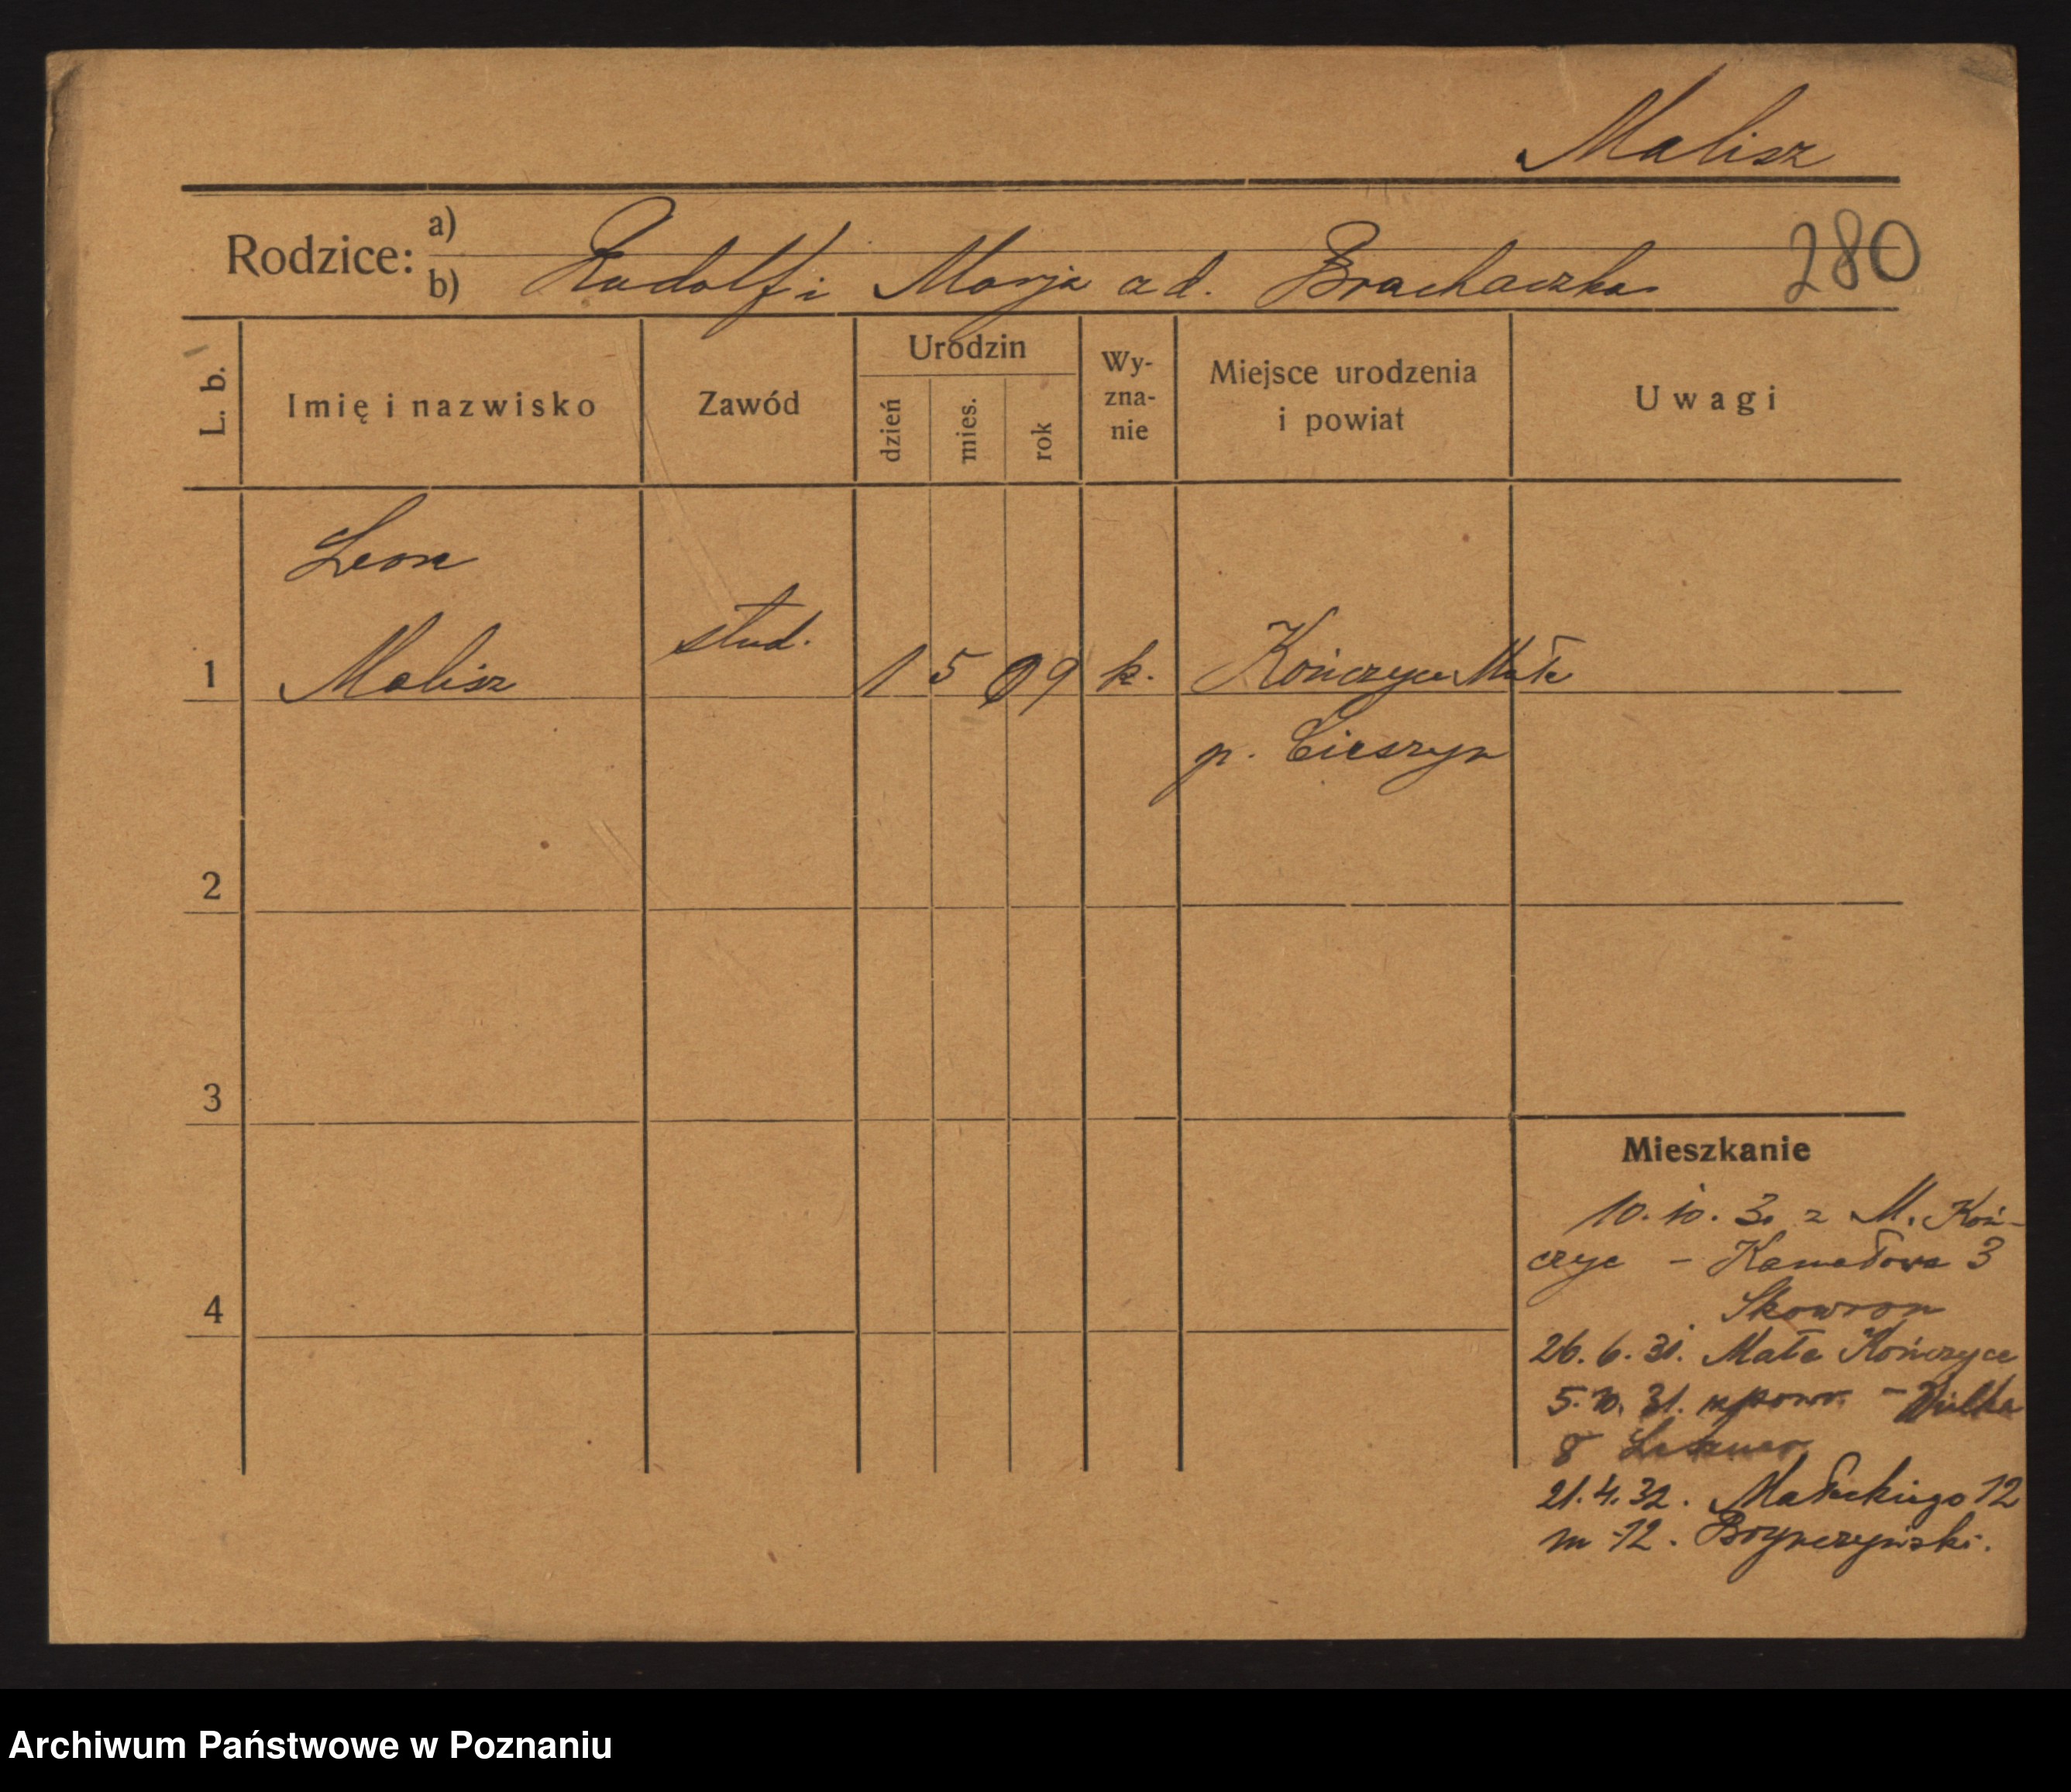 Malisz
Rodzice: a)
b) Rudolf i Marja z d. Brachaczka 280
L. b. Imię i nazwisko Zawód Urodzin dzień mies. rok Wy-zna-nie Miejsce urodzenia i powiat Uwagi
Leon
1 Malisz stud. 1 5 09 k. Kończyce Małe
p. Cieszyn
2
3
Mieszkanie
10.10.30 z M. Koń-
czyc – Kanałowa 3
Skowron
4
26.6.31. Małe Kończyce
5.10.31. – Wielka
8
21.4.32. Małeckiego 12
m 12.
Archiwum Państwowe w Poznaniu